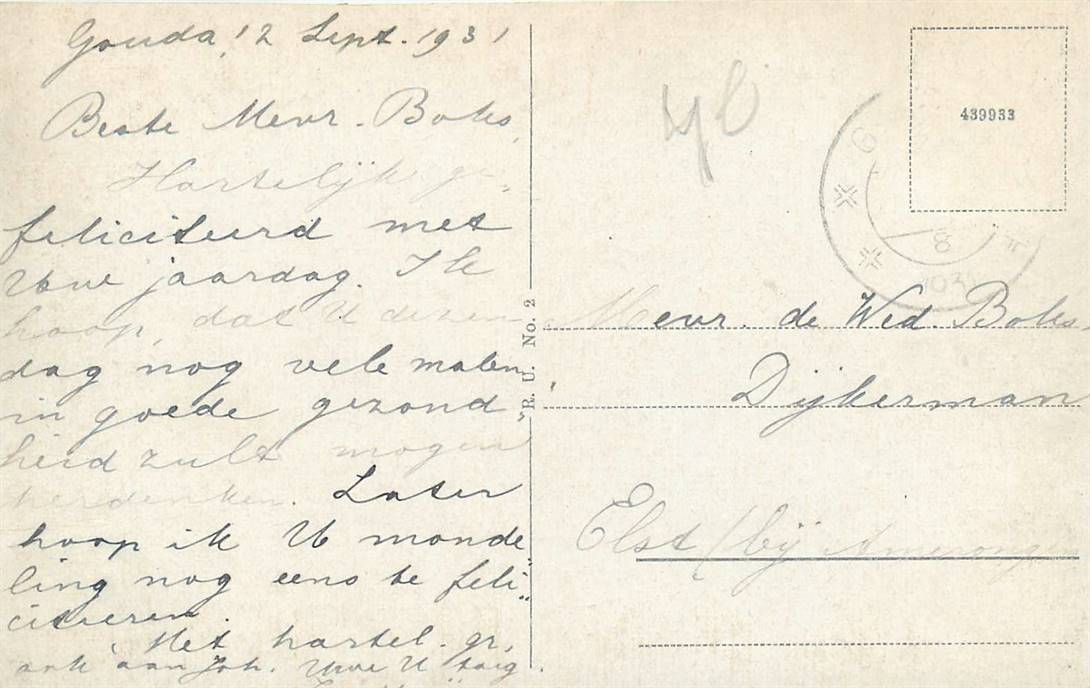 Gouda, 12 Sept. 1931
Beste Mevr. Boks,
Hartelijk ge-
feliciteerd met
Uwe jaardag. Ik
hoop, dat U dezen
dag nog vele malen
in goede gezond-
heid zult mogen
herdenken. Later
hoop ik U monde
ling nog eens te feli
citeeren.
Met hartel. gr.
ook aan Joh. Uwe
R. U. No. 2
439933
G
8
Mevr. de Wed. Boks
Dijkerman
Elst (bij Amerongen